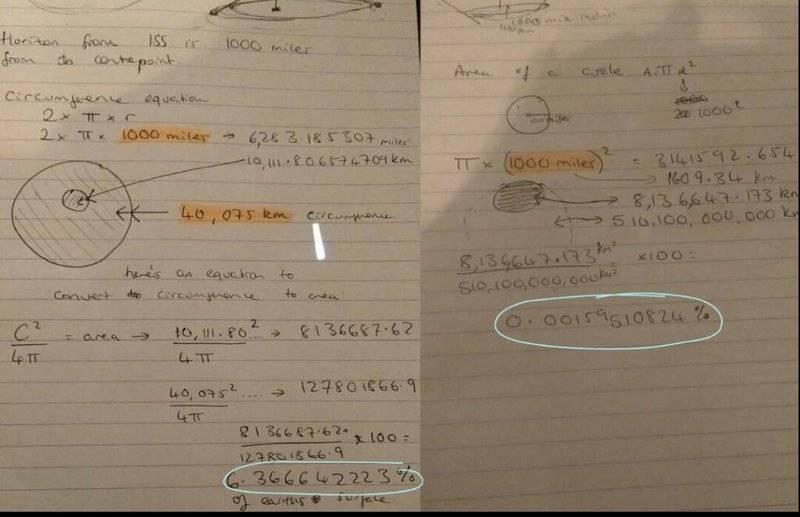 Horizon from ISS is 1000 miles
from its centrepoint.
Circumference equation
2 × π × r
2 × π × 1000 miles → 6,283.185307 miles
10,111.80.6574709 km
40,075 km circumference
here's an equation to
convert circumference to area:
C²/4π = area → 10,111.80².../4π → 8136687.62
40,075².../4π → 127801866.9
8136687.62/127801866.9 × 100 =
6.366642223%
of earths surface
1000 mile
Area of a circle A=π r²
↓
1000²
π × (1000 miles)² = 3141592.654
→ 1609.34 km
→ 8,136,647.173 km
→ 510,100,000,000 km
8,136,647.173 km²/510,100,000,000 km² ×100 =
0.00159510824%